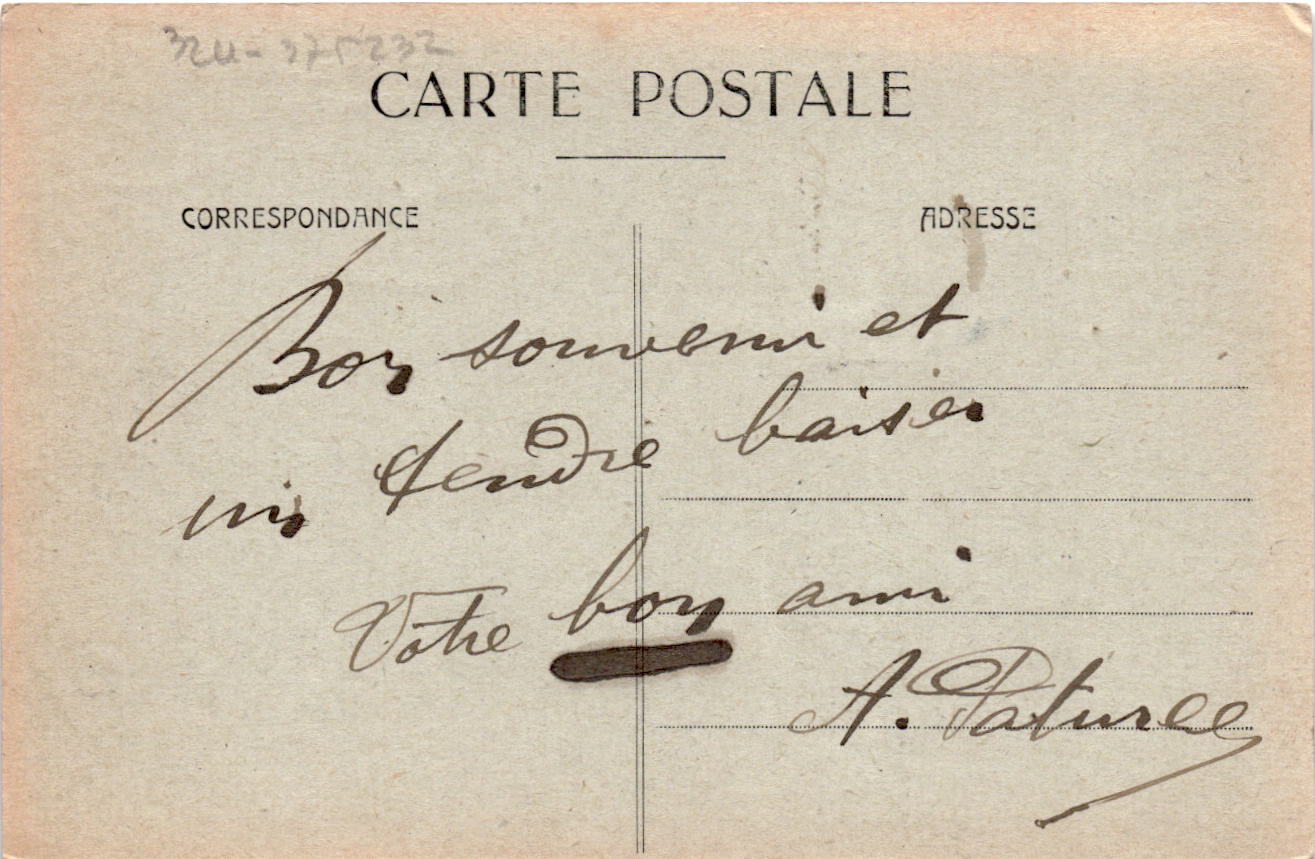 324-375232
CARTE POSTALE
CORRESPONDANCE
ADRESSE
Bon souvenir et
un tendre baiser
Votre bon ami
A.